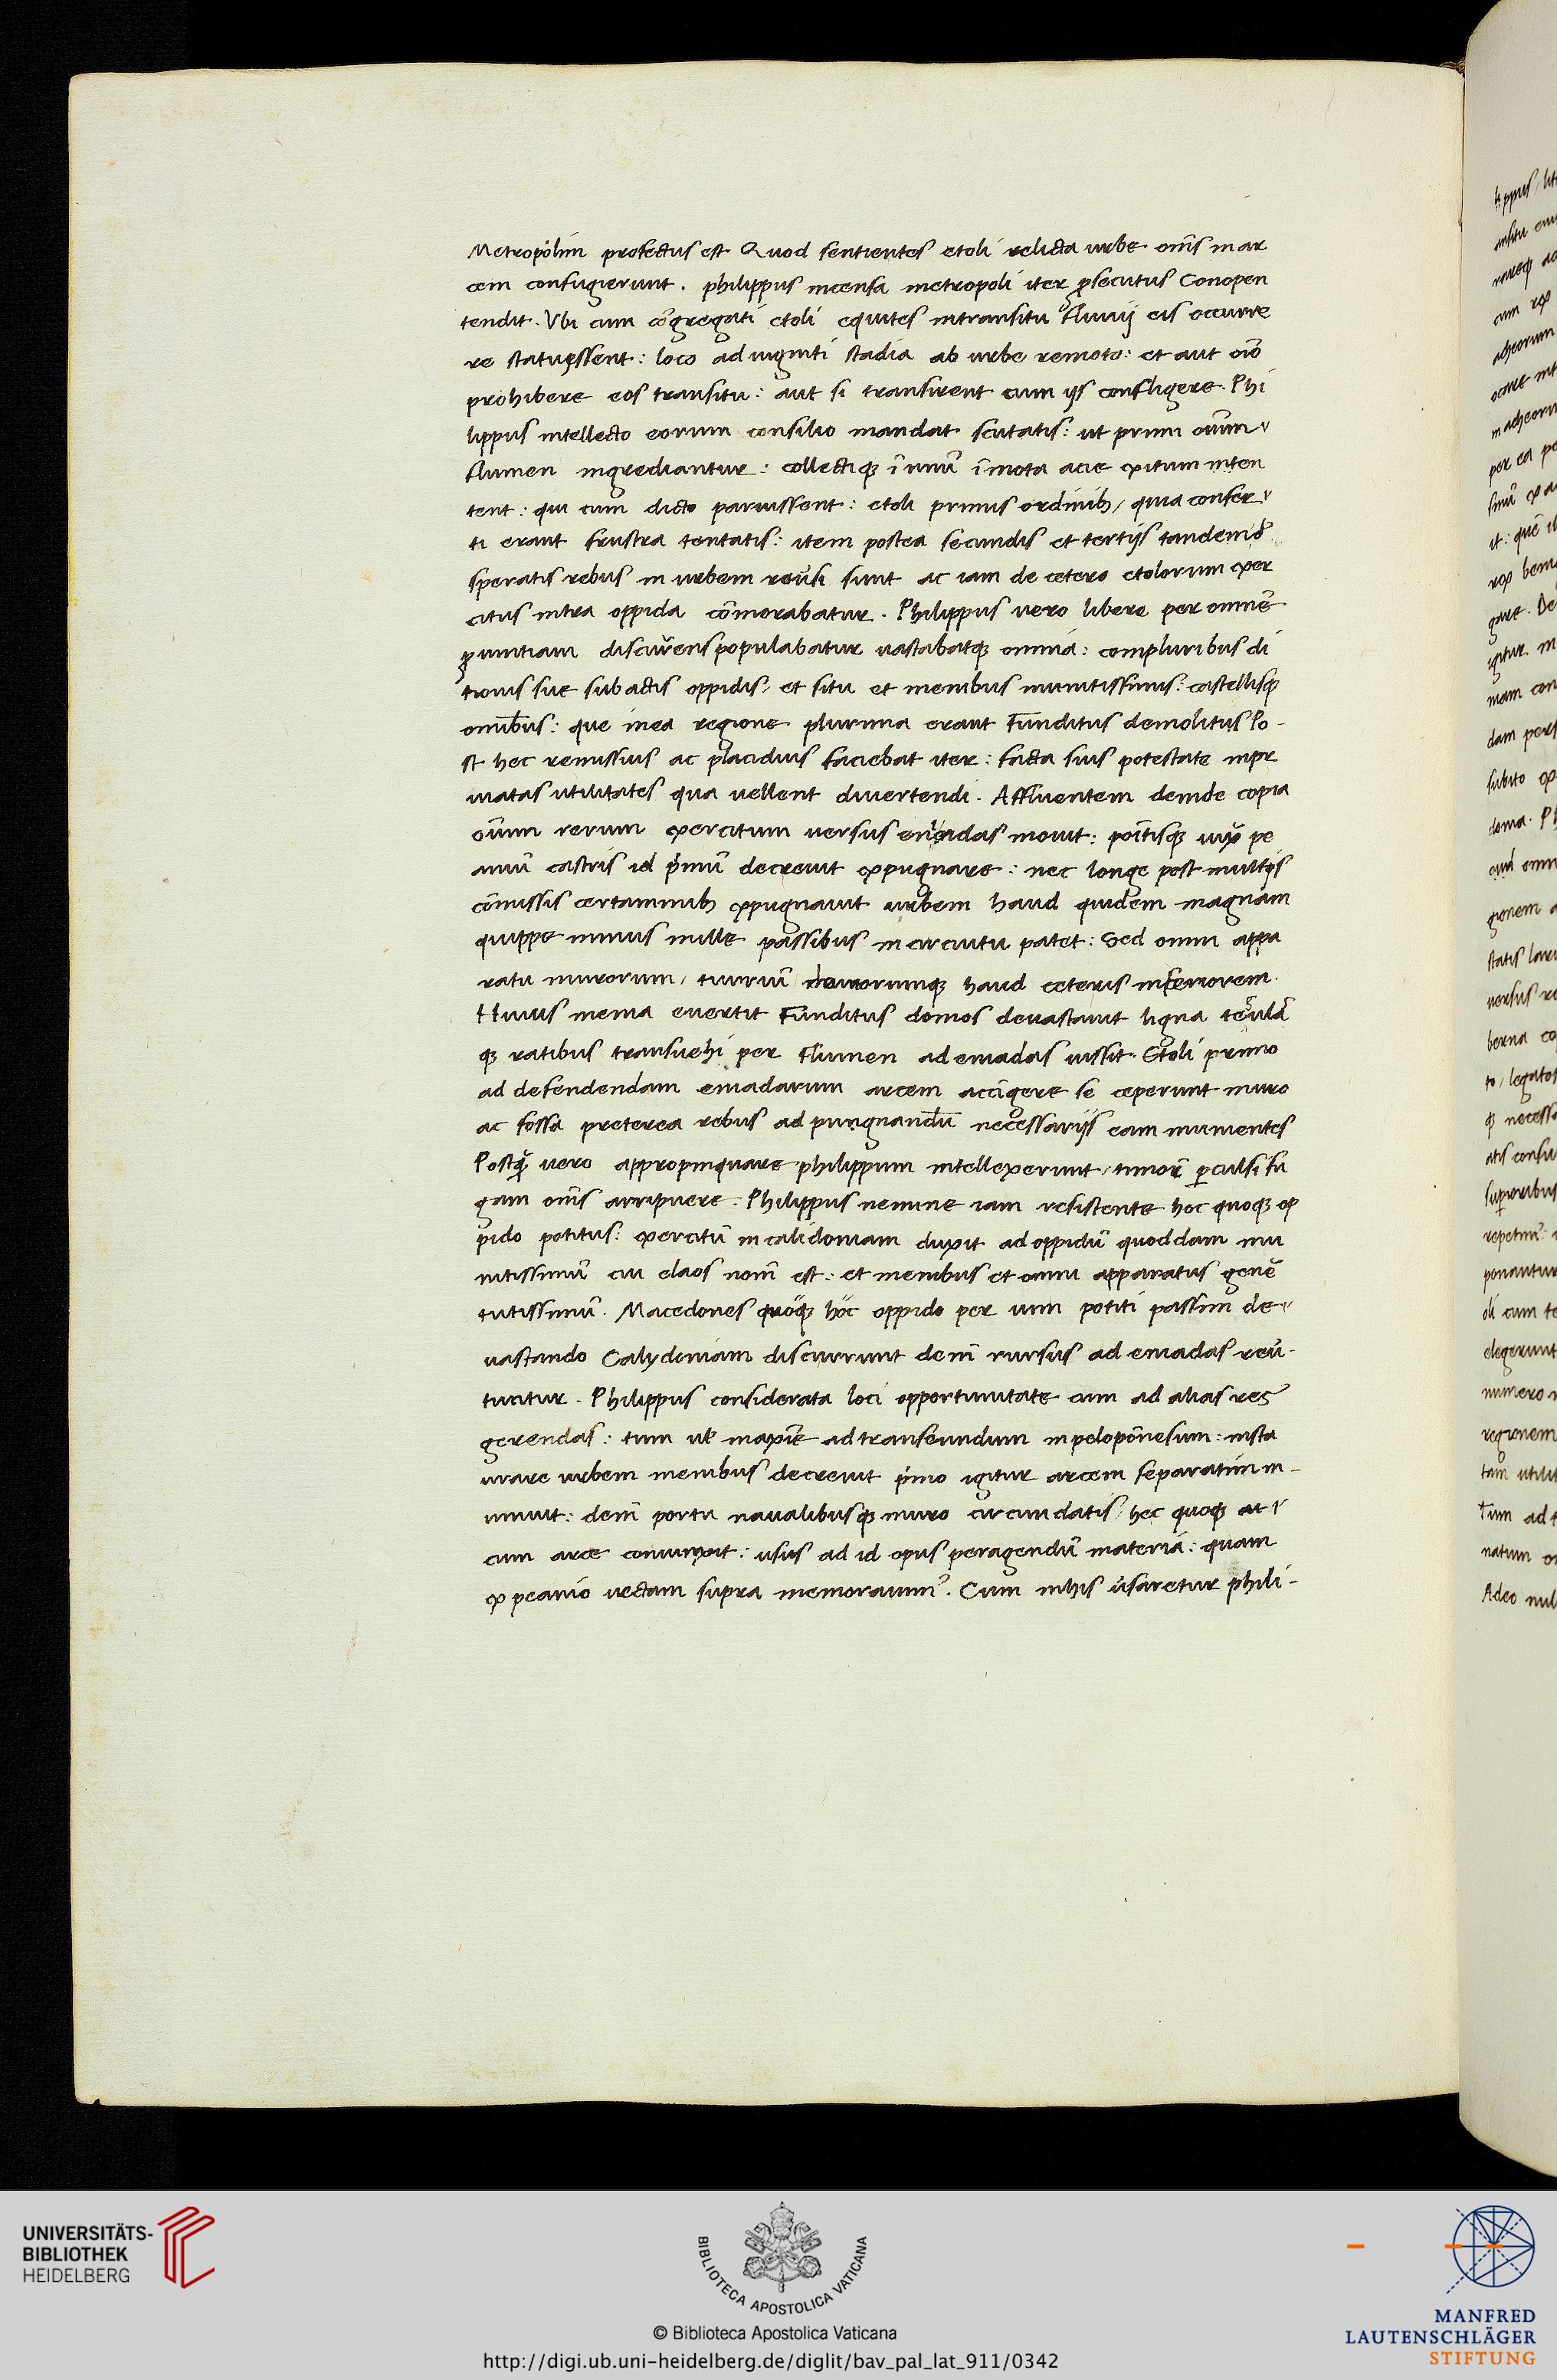 Metropolim profectus est Quod sentientes etoli relicta urbe om̅is in ar
cem confugierunt . philippus incensa metropoli iter ꝓsecutus Conopen
tendit . Vbi cum co̅gregati etoli equites intransitu fluuij eis occurre
re statuissent : loco ad uiginti stadia ab urbe remoto : et aut oi̅o
prohibere eos transitu : aut si transirent cum ijs confligere . Phi
lippus intellecto eorum consilio mandat scutatis : ut primi oi̅um
flumen ingrediantur : collectiqꝫ i̅ unu̅ i̅mota acie exitum inten
tent : qui cum dicto paruissent : etoli primis ordinibꝫ / quia confer
ti erant frustra tentatis : item postea secundis et tertijs tandem d̅
speratis rebus in urbem reu̅si sunt ac iam de cetero etolorum exer
citus intra oppida co̅morabatur . Philippus uero libere per omne̅
ꝓuintiam discur̅ens populabatur uastabatqꝫ omnia : compluribus di
tionis sue subactis oppidis / et situ et menibus munitissimis : castellisqꝫ
omnibus : que inea regione plurima erant Funditus demolitus Po-
st hec remissius ac placidius faciebat iter : facta suis potestate inpr
iuatas utilitates qua uellent diuertendi . Affluentem deinde copia
oi̅um rerum exercitum versus eneadas mouit : poi̅tisqꝫ iux̅ pe
aniu̅ castris id p̅imu̅ decreuit expugnare : nec longe post multis
co̅missis certaminibꝫ expugnauit urbem haud quidem magnam
quippe minus mille passibus in circuitu patet : Sed omni appa
ratu murorum / turriu̅ domorumqꝫ haud ceteris inferiorem .
Huius menia euertit Funditus domos deuastauit ligna tegula̅
qꝫ ratibus transuehi per flumen ad eniadas iussit . Etoli primo
ad defendendam eniadarum arcem accingere se ceperunt muro
ac fossa preterea rebus ad pungnandu̅ necessarijs eam munientes
Postqua̅ uero appropinquare philippum intellexerunt / timor̅ ꝑculsi fu
gam om̅is arripuere . Philippus nemine iam resistente hoc quoqꝫ op
pido potitus : exercitu̅ in calidoniam duxit ad oppidu̅ quoddam mu
nitissimu̅ cui elaos nom̅ est : et menibus et omni apparatus gene̅
tutissimu̅ . Macedones quoqꝫ hoc oppido per uim potiti passim de
uastando Calydoniam discurrunt dein̅ rursus ad eniadas reu̅-
tuntur . Philippus considerata loci opportunitate cum ad alias res
gerendas : tum uel maxi̅e ad transeundum in pelopo̅nesum : insta
urare urbem menibus decreuit p̅imo igitur arcem separatim m-
uniuit : dein̅ portu naualibusqꝫ muro circundatis / hec quoqꝫ
cum arce coniunxit : usus ad id opus peragendu̅ materia : quam
ex peanio uectam supra memorauimꝰ . Cum inhis u̅saretur phili-
UNIVERSITÄTS-
BIBLIOTHEK
HEIDELBERG
BIBLIOTECA APOSTOLICA VATICANA
© Biblioteca Apostolica Vaticana
http://digi.ub.uni-heidelberg.de/diglit/bav_pal_lat_911/0342
MANFRED
LAUTENSCHLÄGER
STIFTUNG